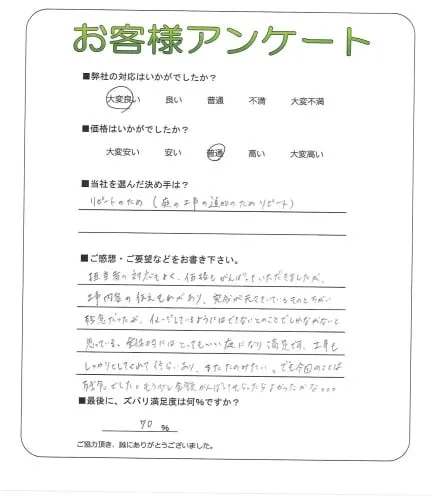 お客様アンケート
■弊社の対応はいかがでしたか？
大変良い 良い 普通 不満 大変不満
■価格はいかがでしたか？
大変安い 安い 普通 高い 大変高い
■当社を選んだ決め手は？
リピートのため（庭の工事の追加のためリピート）
■ご感想・ご要望などをお書き下さい。
担当者の対応もよく、価格もがんばっていただきましたが、
工事内容の伝えもれがあり、完成が
残念だったが、しているようにはできないとのことでしかながないと
思っている。全体的にはとってもいい庭になり満足です、工事も
しっかりとしてくれて おり、またたのみたい。でも今回のことは
残念でした。もう少し金額がんばってもらったらよかったかな。。。
■最後に、ズバリ満足度は何％ですか？
90 ％
ご協力頂き、誠にありがとうございました。